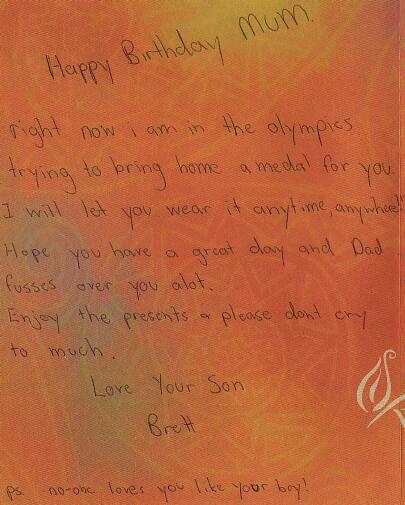 Happy Birthday Mum.
right now i am in the olympics
trying to bring home a medal for you.
I will let you wear it anytime, anywhere!!
Hope you have a great day and Dad
fusses over you alot.
Enjoy the presents & please dont cry
to much.
Love Your Son
Brett
ps. no-one loves you like your boy!